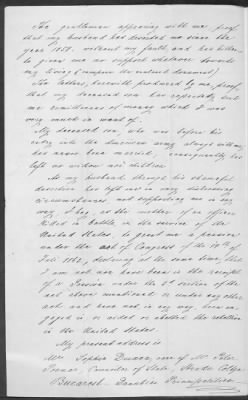 Two gentlemen appearing with me, proof
that my husband has deserted me since the
year 1858. without my fault and has hither-
to given me no support whatever towards
my living (compare the enclosed document)
Two letters, herewith produced by me, proof,
that my deceased son has repeatedly sent
me remittances of money which I was
very much in want of.
My deceased son, who was before his
entry into the American army always with me,
has never been married, consequently has
left no widow nor children.
As my husband through his shameful
desertion has left me in very distressing
circumstances, not supporting me in any
way, I beg, as the mother of an officer
killed in battle in the service of the
United States, to grant me a pension
under the act of Congress of the 14th of
Juli 1862, declaring at the same time, that
I am not nor have been in the receipt
of a Pension under the 2d section of the
act above mentioned or under any other
act and have not in any way been en-
gaged in or aided or abetted the rebellion
in the United States.
My present address is
Mrs Sophie care of Mr Peter
Counsellor of State, Strada
Bucarest - Danubian Principalities